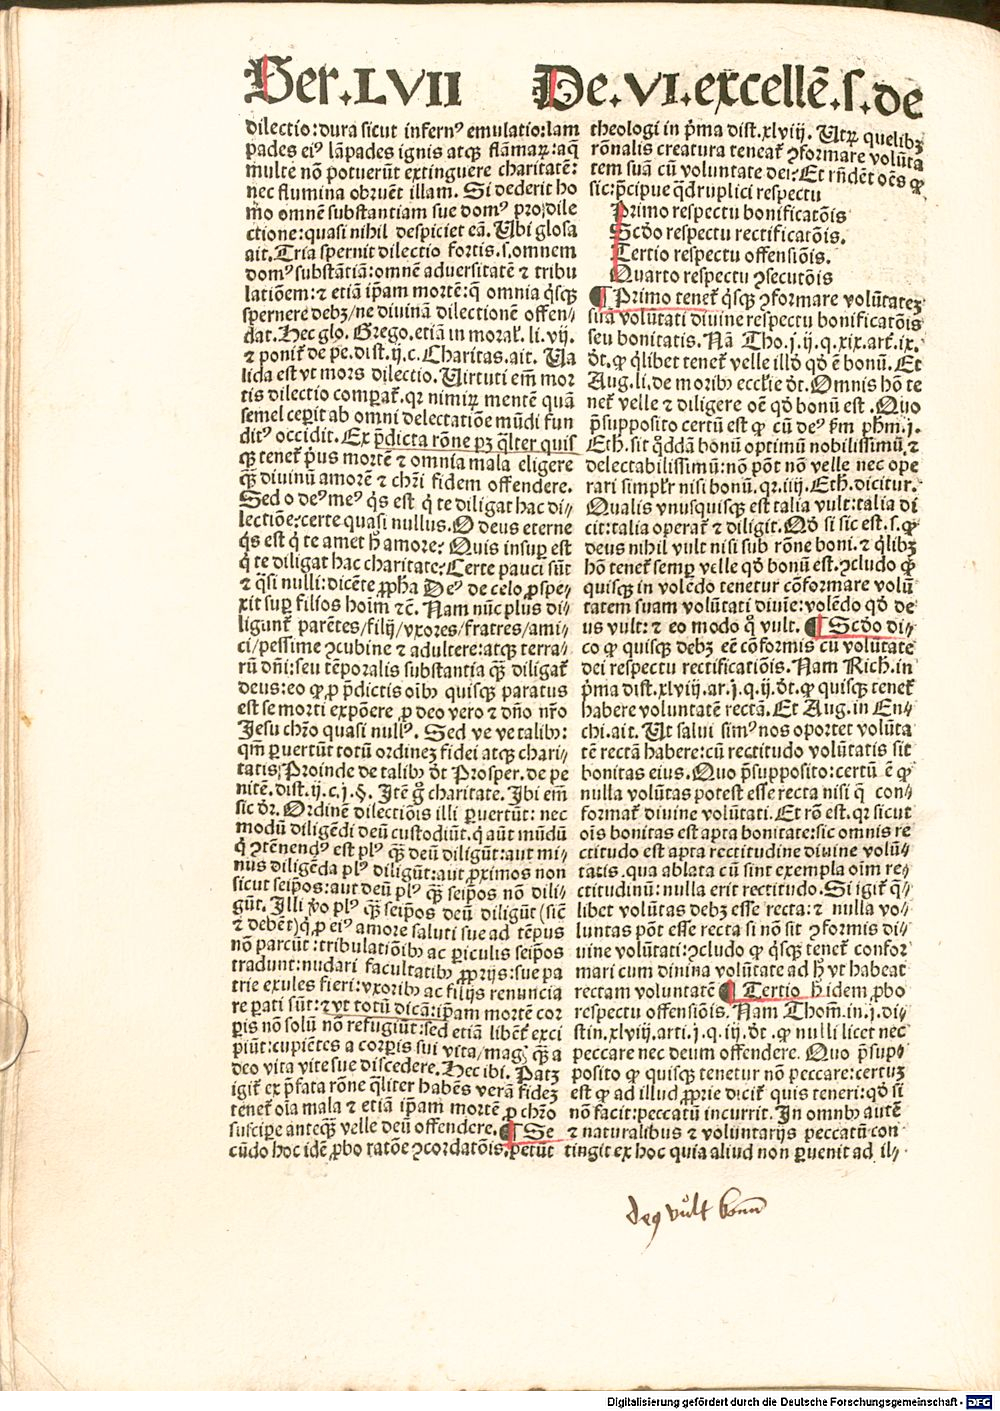 Ser.LVII De.VI.excellē.s.de
dilectio:dura sicut infernꝰ emulatio:lam
pades eiꝰ lāpades ignis atqꝫ flāmaꝝ:aq̄
multe nō potuerūt extinguere charitatē:
nec flumina obruēt illam. Si dederit ho
mo omnē substantiam sue domꝰ pro dile
ctione:quasi nihil despiciet eā. Ubi glosa
ait. Tria spernit dilectio fortis.s.omnem
domꝰ substātiā:omnē aduersitatē ⁊ tribu
latiōem:⁊ etiā ip̄am mortē:q̄ omnia q̇sqꝫ
spernere debꝫ/ne diuinā dilectionē offen⸗
dat. Hec glo. Grego.etiā in moraľ. li. vij.
⁊ poniť de pe.dist.ij.c. Charitas.ait. Ua
lida est vt mors dilectio. Uirtuti em̄ mor
tis dilectio comparať. qꝛ nimiꝝ mentē quā
semel ceperit ab omni delectatiōe mūdi fun
ditꝰ occidit. Ex p̄dicta rōne pꝫ q̄lter quis
qꝫ teneť pꝰus mortē ⁊ omnia mala eligere
qꝫ̄ diuinū amorē ⁊ chr̄i fidem offendere.
Sed o deꝰ meꝰ q̇s est q̇ te diligat hac di⸗
lectiōe:certe quasi nullus. O deus eterne
q̇s est q̇ te amet h̄ amore? Quis insuꝑ est
q̇ te diligat hac charitate? Certe pauci sūt
⁊ q̄si nulli:dicēte ꝓp̄ha Deꝰ de celo ꝓspe⸗
xit suꝑ filios hoīm ⁊c̄. Nam nūc plus di⸗
liguni parētes/filij/vxores/fratres/ami⸗
ci/pessime ꝯcubine ⁊ adultere:atqꝫ terra⸗
rū dn̄i:seu tēporalis substantia qꝫ̄ diligať
deus:eo ꝙ ꝓ p̄dictis oībꝰ quisqꝫ paratus
est se morti expōere ꝓ deo vero ⁊ dn̄o nr̄o
Jesu chr̄o quasi nullꝰ. Sed ve ve talibꝰ:
qm̄ ꝑuertūt totū ordinez fidei atqꝫ chari⸗
tatis. Proinde de talibꝰ d̄t Prosper. de pe
nitē.dist.ij.c.j.§. Jtē ḡ charitate. Jbi em̄
sic dr̄. Ordinē dilectiōis illi ꝑuertūt: nec
modū diligēdi deū custodiūt.q̇ aūt mūdū
q̇ ꝯtēnendꝰ est plꝰ qꝫ̄ deū diligūt:aut mi⸗
nus diligēda plꝰ diligūt:aut ꝓximos non
sicut seip̄os:aut deū plꝰ qꝫ̄ seip̄os nō dili⸗
gūt. Jlli ṽo plꝰ qꝫ̄ seip̄os deū diligūt (sic̄
⁊ debēt) q̇ ꝓ eiꝰ amore saluti sue ad tēpus
nō parcūt:tribulatiōibꝰ ac ꝑiculis seip̄os
tradunt:nudari facultatibꝰ ꝓprijs:sue pa
trie exules fieri:vxoribꝰ ac filijs renuncia
re ꝑati sūt:⁊ vt totū dicā:ip̄am mortē cor
ꝑis nō solū nō refugiūt:sed etiā libēť exci
piūt:cupiētes a corꝑis sui vita/magꝭ qꝫ̄ a
deo vita vite sue discedere. Hec ibi. Patꝫ
igiť ex p̄fata rōne q̄liter habēs verā fidez
teneť oīa mala ⁊ etiā ip̄am mortē ꝓ chr̄o
suscipe anteqꝫ̄ velle deū offendere. ¶ Se
cūdo hoc idē ꝓbo ratōe ꝯcordatōis.petūt
theologi in p̄ma dist.xlviij. Utꝝ quelibꝫ
rōnalis creatura teneať ꝯformare volūta
tem suā cū voluntate dei? Et rn̄dēt oēs ꝙ
sic:p̄cipue q̄druplici respectu
Primo respectu bonificatōis
Scd̄o respectu rectificatōis.
Tertio respectu offensiōis.
Quarto respectu ꝯsecutōis
¶ Primo teneť q̇sqꝫ ꝯformare volūtatez
suā volūtati diuine respectu bonificatōis
seu bonitatis. Nā Tho.j.ij.q.xix.arť.ix.
d̄t. ꝙ q̇libet teneť velle illd̄ qd̄ ē bonū. Et
Aug.li.de moribꝰ eccľie d̄t. Omnis hō te
neť velle ⁊ diligere oē qd̄ bonū est. Quo
p̄supposito certū est ꝙ cū deꝰ ẜm ph̄m.j.
Eth.sit q̇ddā bonū optimū nobilissimū ⁊
delectabilissimū:nō pōt nō velle nec ope
rari simpľr nisi bonū. qꝛ.iiij. Eth̄. dicitur.
Qualis vnusquisqꝫ est talia vult:talia di
cit:talia operať ⁊ diligit. Qd̄ si sic est.s.ꝙ
deus nihil vult nisi sub rōne boni.⁊ q̇libꝫ
hō teneť semꝑ velle qd̄ bonū est.ꝯcludo ꝙ
quisqꝫ in volēdo tenetur cōformare volū
tatem suam volūtati diuīe:volēdo qd̄ de
us vult: ⁊ eo modo q̊ vult. ¶ Scd̄o di⸗
co ꝙ quisqꝫ debꝫ eē cōformis cū volūtate
dei respectu rectificatiōis. Nam Rich.in
p̄ma dist.xlviij.ar.j.q.ij.d̄t.ꝙ quisqꝫ teneť
habere voluntatē rectā. Et Aug.in En⸗
chi.ait. Ut salui simꝰ nos oportet volūta
tē rectā habere:cū rectitudo volūtatis sit
bonitas eius. Quo p̄supposito:certū ē ꝙ
nulla volūtas potest esse recta nisi q̄ con⸗
formať diuine volūtati. Et rō est.qꝛ sicut
oīs bonitas est apta bonitate:sic omnis re
ctitudo est apta rectitudine diuine volū⸗
tatis.qua ablata cū sint exempla oīm re⸗
ctitudinū:nulla erit rectitudo. Si igiť q̇⸗
libet volūtas debꝫ esse recta:⁊ nulla vo⸗
luntas pōt esse recta si nō sit ꝯformis di⸗
uine volūtati:ꝯcludo ꝙ q̇sqꝫ teneť confor
mari cum diuina volūtate ad h̄ vt habeat
rectam voluntatē ¶ Tertio h̄ idem ꝓbo
respectu offensiōis. Nam Thom̄.in.j.di⸗
stin.xlviij.arti.j.q.iij.d̄t.ꝙ nulli licet nec
peccare nec deum offendere. Quo p̄sup⸗
posito ꝙ quisqꝫ tenetur nō peccare:certuꝫ
est ꝙ ad illud ꝓprie diciť quis teneri:qd̄ si
nō facit:peccatū incurrit. Jn omnibꝰ autē
⁊ naturalibus ⁊ voluntarijs peccatū con
tingit ex hoc quia aliud non ꝑuenit ad il⸗
deꝰ vult bonū
Digitalisierung gefördert durch die Deutsche Forschungsgemeinschaft - DFG